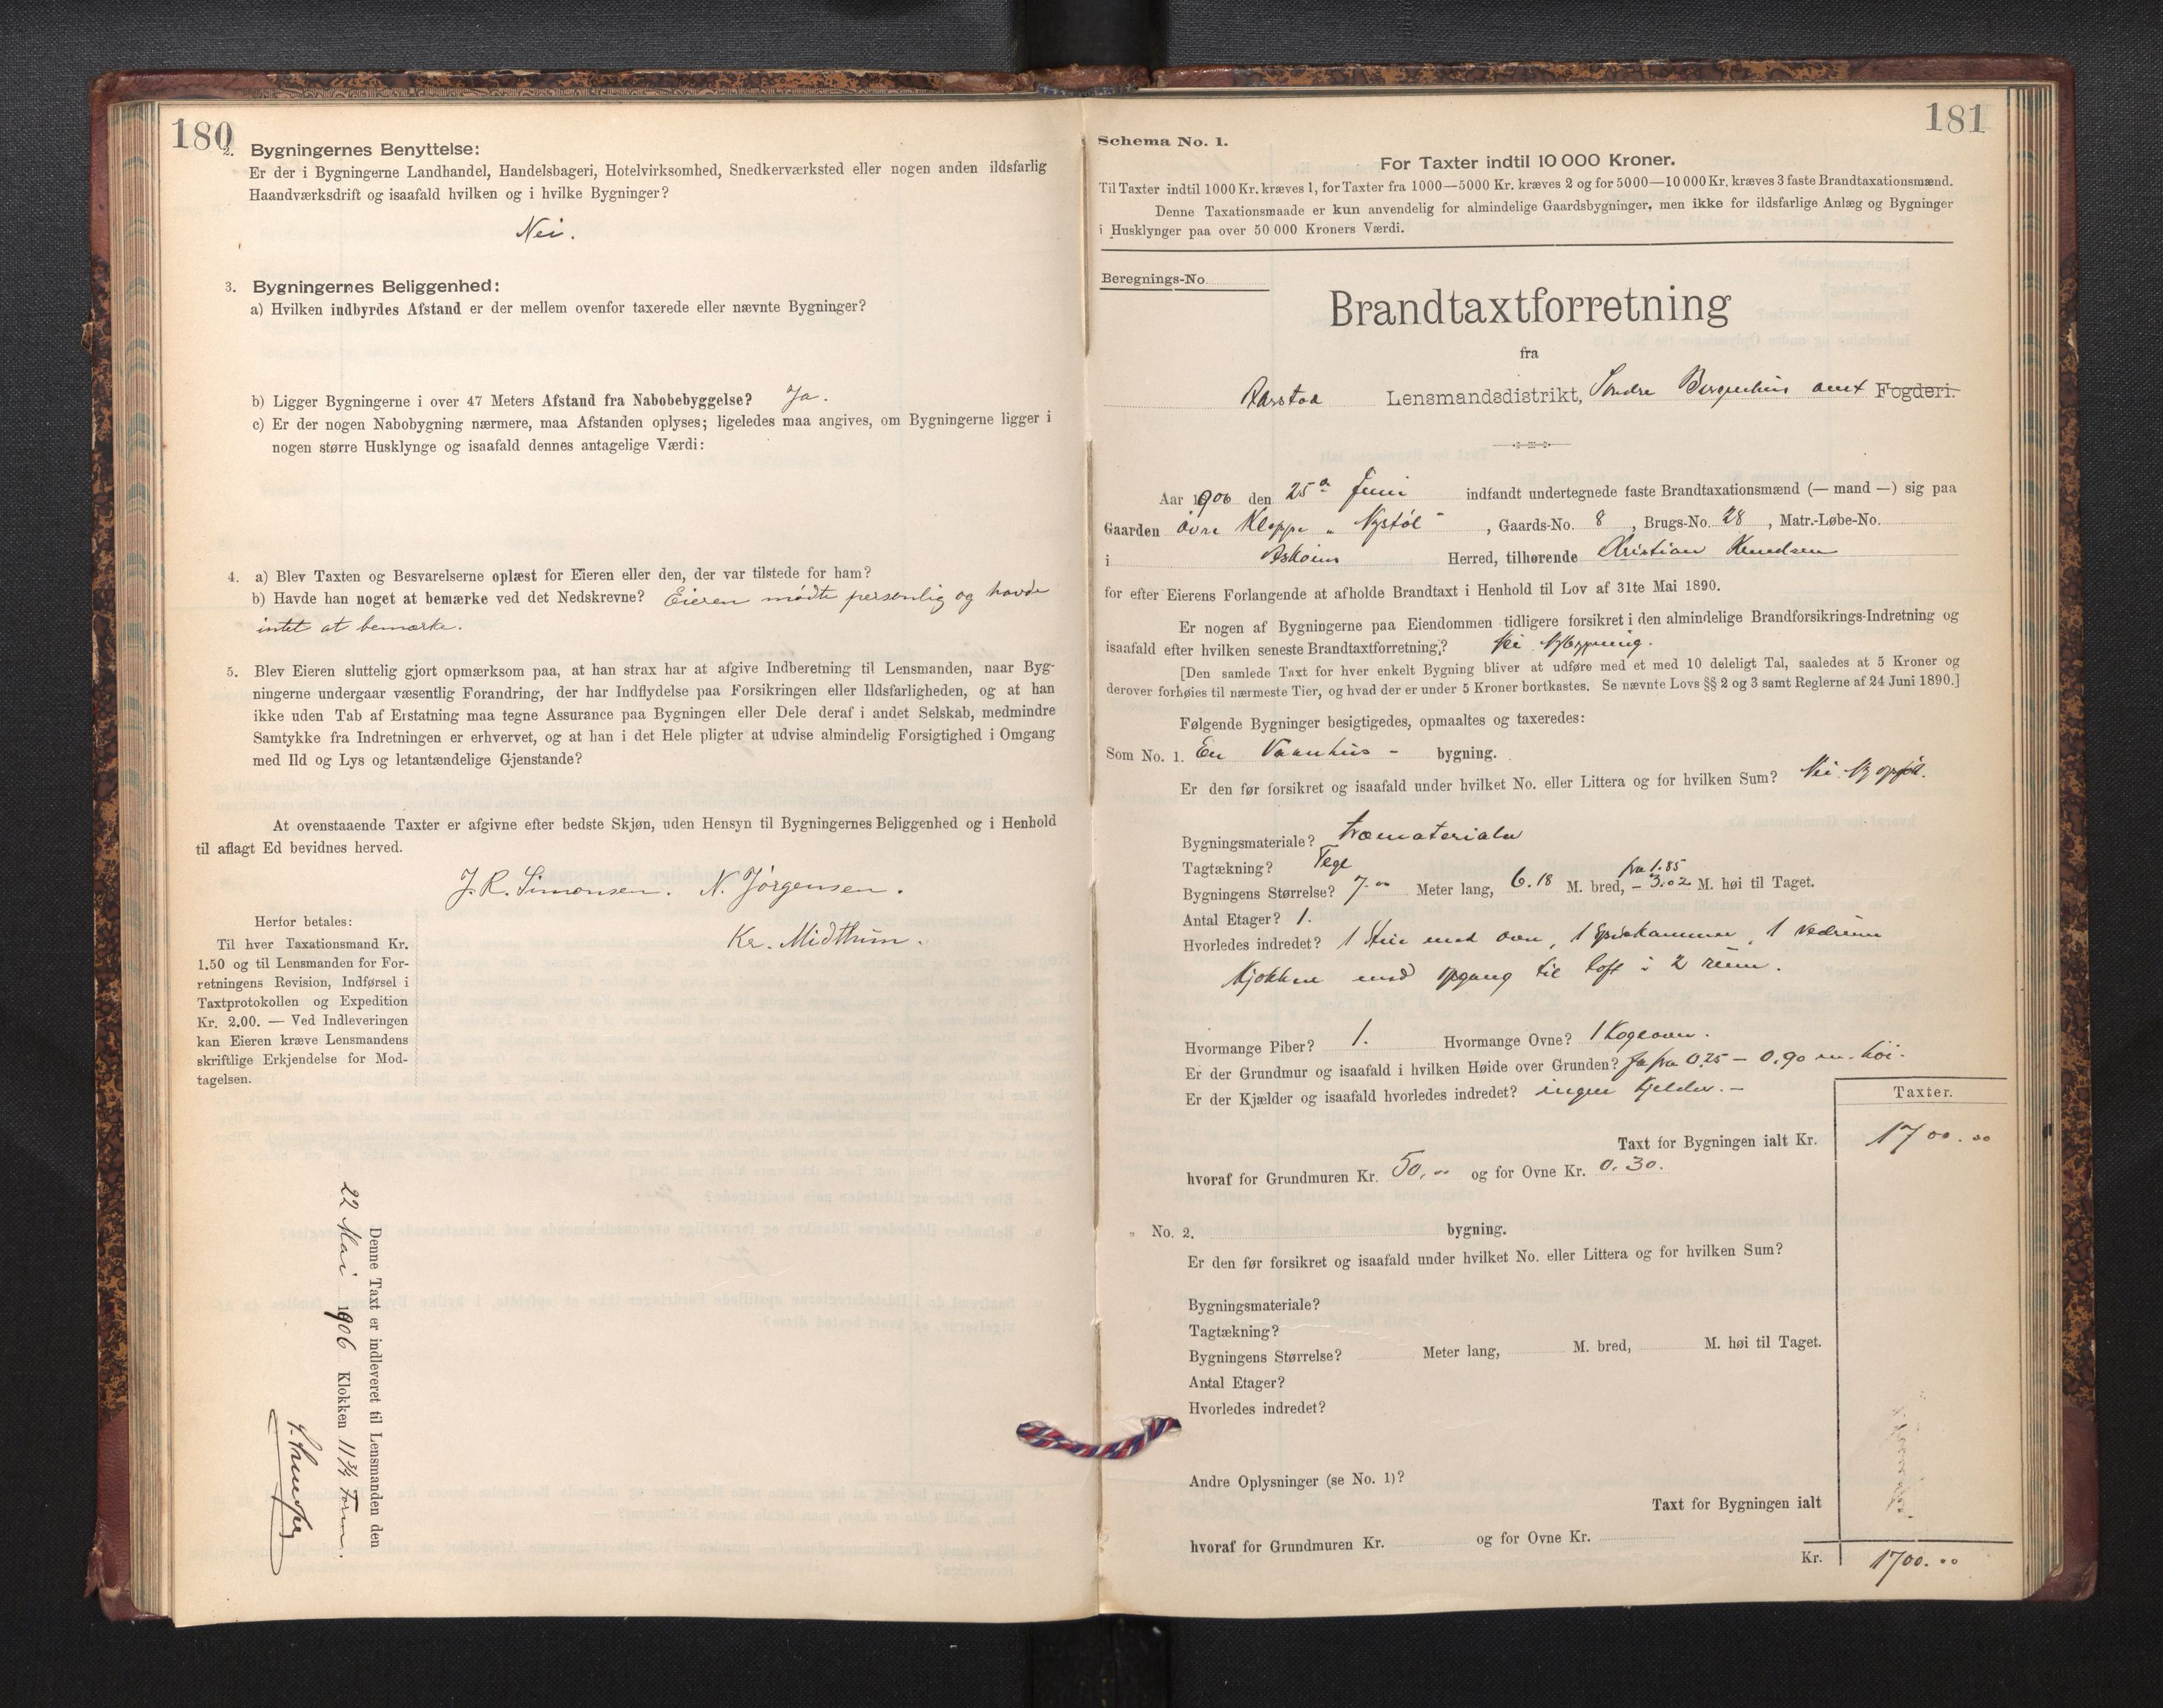 180
2. Bygningernes Benyttelse:
Er der i Bygningerne Landhandel, Handelsbageri, Hotelvirksomhed, Snedkerværksted eller nogen anden ildsfarlig
Haandværksdrift og isaafald hvilken og i hvilke Bygninger?
Nei.
3. Bygningernes Beliggenhed:
a) Hvilken indbyrdes Afstand er der mellem ovenfor taxerede eller nævnte Bygninger?
b) Ligger Bygningerne i over 47 Meters Afstand fra Nabobebyggelse? Ja.
c) Er der nogen Nabobygning nærmere, maa Afstanden oplyses; ligeledes maa angives, om Bygningerne ligger i
nogen større Husklynge og isaafald dennes antagelige Værdi:
4. a) Blev Taxten og Besvarelserne oplæst for Eieren eller den, der var tilstede for ham?
b) Havde han noget at bemærke ved det Nedskrevne? Eieren mødte personlig og havde
intet at bemærke.
5. Blev Eieren sluttelig gjort opmærksom paa, at han strax har at afgive Indberetning til Lensmanden, naar Byg-
ningerne undergaar væsentlig Forandring, der har Indflydelse paa Forsikringen eller Ildsfarligheden, og at han
ikke uden Tab af Erstatning maa tegne Assurance paa Bygningen eller Dele deraf i andet Selskab, medmindre
Samtykke fra Indretningen er erhvervet, og at han i det Hele pligter at udvise almindelig Forsigtighed i Omgang
med Ild og Lys og letantændelige Gjenstande?
At ovenstaaende Taxter er afgivne efter bedste Skjøn, uden Hensyn til Bygningernes Beliggenhed og i Henhold
til aflagt Ed bevidnes herved.
J. R. Simonsen. N. Jørgensen.
Kr. Midthun.
Herfor betales:
Til hver Taxationsmand Kr.
1.50 og til Lensmanden for For-
retningens Revision, Indførsel i
Taxtprotokollen og Expedition
Kr. 2.00. — Ved Indleveringen
kan Eieren kræve Lensmandens
skriftlige Erkjendelse for Mod-
tagelsen.
Denne Taxt er indleveret til Lensmanden den
22 Mai 1906 Klokken 11¾ Form.
181
Schema No. 1.
For Taxter indtil 10 000 Kroner.
Til Taxter indtil 1000 Kr. kræves 1, for Taxter fra 1000—5000 Kr. kræves 2 og for 5000—10 000 Kr. kræves 3 faste Brandtaxationsmænd.
Denne Taxationsmaade er kun anvendelig for almindelige Gaardsbygninger, men ikke for ildsfarlige Anlæg og Bygninger
i Husklynger paa over 50 000 Kroners Værdi.
Beregnings-No.
Brandtaxtforretning
fra
Aarstad Lensmandsdistrikt, Søndre Bergenhus amt Fogderi.
Aar 1906 den 25de Juni indfandt undertegnede faste Brandtaxationsmænd (— mand —) sig paa
Gaarden øvre Kleppe „Nystøl" , Gaards-No. 8 , Brugs-No. 28 , Matr.-Løbe-No.
i Askøens Herred, tilhørende Kristian Knudsen
for efter Eierens Forlangende at afholde Brandtaxt i Henhold til Lov af 31te Mai 1890.
Er nogen af Bygningerne paa Eiendommen tidligere forsikret i den almindelige Brandforsikrings-Indretning og
isaafald efter hvilken seneste Brandtaxtforretning? Nei Nybygning.
[Den samlede Taxt for hver enkelt Bygning bliver at udføre med et med 10 deleligt Tal, saaledes at 5 Kroner og
derover forhøies til nærmeste Tier, og hvad der er under 5 Kroner bortkastes. Se nævnte Lovs §§ 2 og 3 samt Reglerne af 24 Juni 1890.]
Følgende Bygninger besigtigedes, opmaaltes og taxeredes:
Som No. 1. En Vaanhus - bygning.
Er den før forsikret og isaafald under hvilket No. eller Littera og for hvilken Sum? Nei
Bygningsmateriale? træmaterialer
Tagtækning? Tegl
fra 1.85
Bygningens Størrelse? 7.00 Meter lang, 6.18 M. bred, – 3.02 M. høi til Taget.
Antal Etager? 1.
Hvorledes indredet? 1 Stue med ovn, 1 Spisekammer, 1 vedrum
Kjøkken med opgang til loft i 2 rum.
Hvormange Piber? 1. Hvormange Ovne? 1 Kogeovn.
Er der Grundmur og isaafald i hvilken Høide over Grunden? Ja fra 0,25 — 0,90 m. høi.
Er der Kjælder og isaafald hvorledes indredet? ingen kjelder. –
Taxter.
Taxt for Bygningen ialt Kr. 1700.00
hvoraf for Grundmuren Kr. 50,00 og for Ovne Kr. 0.30.
„ No. 2. bygning.
Er den før forsikret og isaafald under hvilket No. eller Littera og for hvilken Sum?
Bygningsmateriale?
Tagtækning?
Bygningens Størrelse? Meter lang, M. bred, M. høi til Taget.
Antal Etager?
Hvorledes indredet?
Andre Oplysninger (se No. 1)?
Taxt for Bygningen ialt
hvoraf for Grundmuren Kr. og for Ovne Kr.
Kr. 1700.00